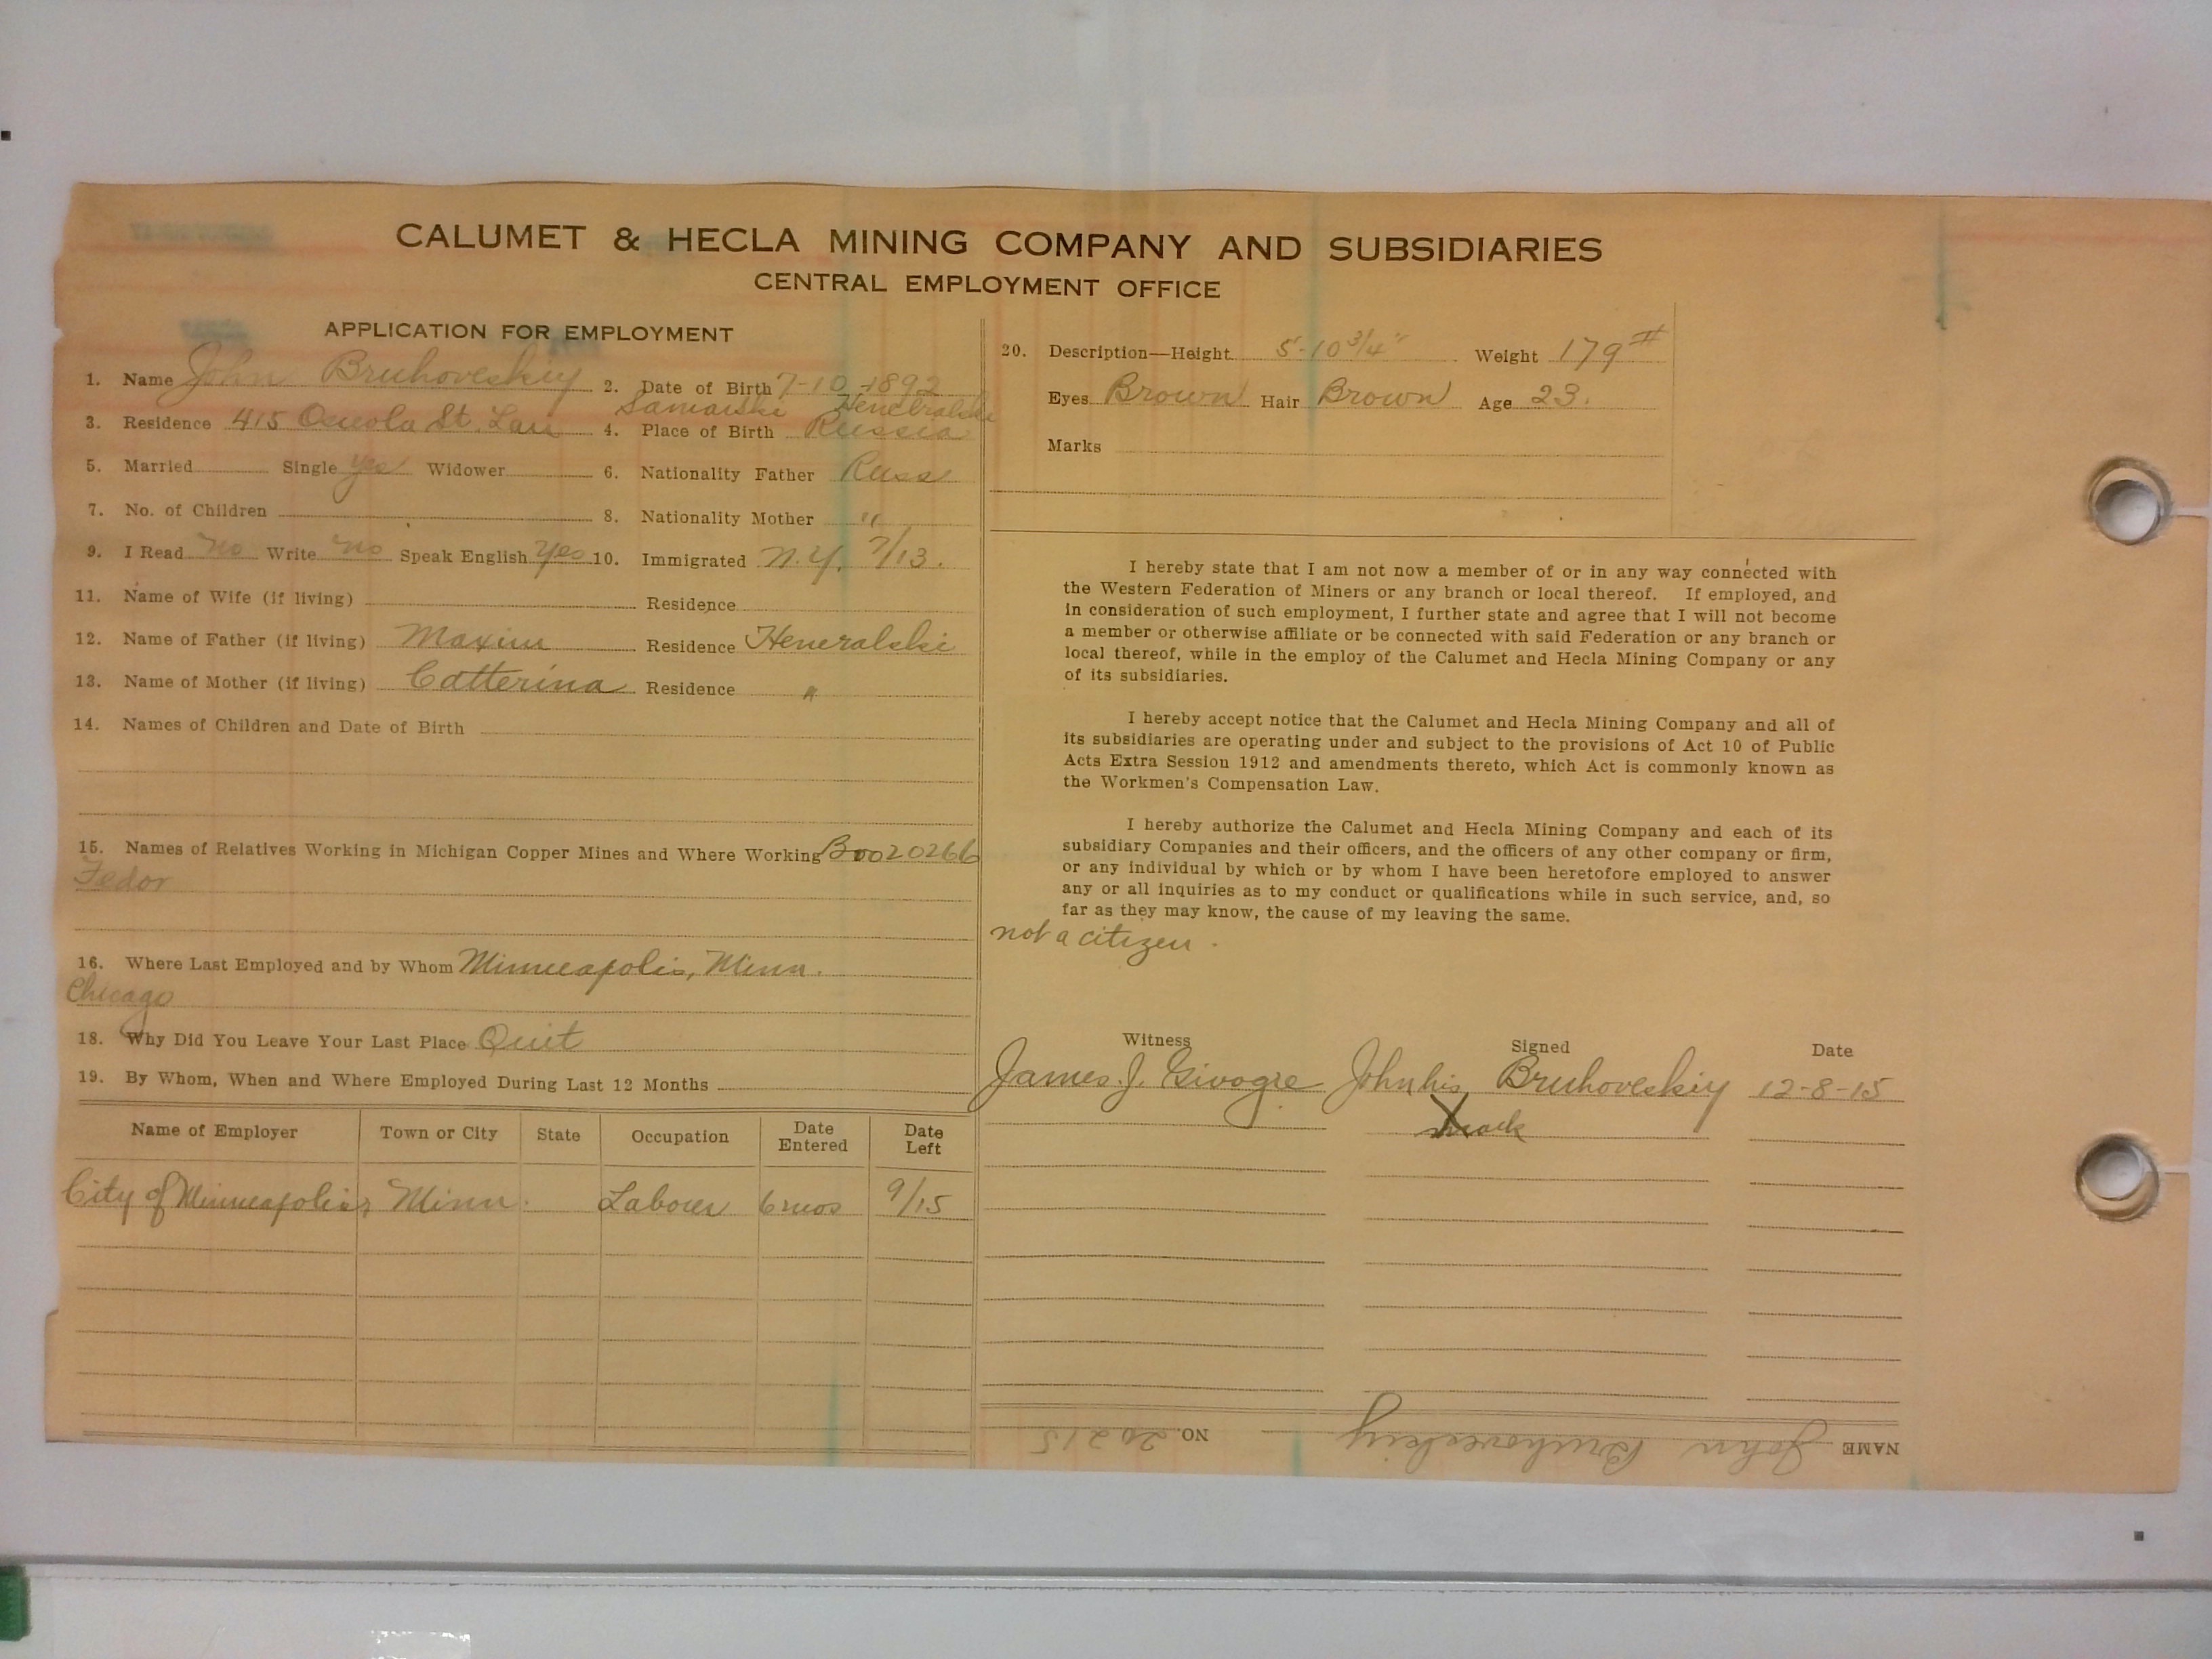 CALUMET & HECLA MINING COMPANY AND SUBSIDIARIES
CENTRAL EMPLOYMENT OFFICE
APPLICATION FOR EMPLOYMENT
1. Name John Bruhoveskiy 2. Date of Birth 7-10-1892
Samarski Heneralski
3. Residence 415 Oceola St. Lau 4. Place of Birth Russia
5. Married Single yes Widower 6. Nationality Father Russ
7. No. of Children 8. Nationality Mother "
9. I Read no Write no Speak English Yes 10. Immigrated N.Y. 7/13.
11. Name of Wife (if living) Residence
12. Name of Father (if living) Maxim Residence Heneralski
13. Name of Mother (if living) Catterina Residence "
14. Names of Children and Date of Birth
15. Names of Relatives Working in Michigan Copper Mines and Where Working Bro 20266
Fedor
16. Where Last Employed and by Whom Minneapolis, Minn.
Chicago
18. Why Did You Leave Your Last Place Quit
19. By Whom, When and Where Employed During Last 12 Months
Name of Employer Town or City State Occupation Date Entered Date Left
City of Minneapolis, Minn. Laborer 6 mos 9/15
20. Description—Height 5'-10 3/4" Weight 179 #
Eyes Brown Hair Brown Age 23.
Marks
I hereby state that I am not now a member of or in any way connected with
the Western Federation of Miners or any branch or local thereof. If employed, and
in consideration of such employment, I further state and agree that I will not become
a member or otherwise affiliate or be connected with said Federation or any branch or
local thereof, while in the employ of the Calumet and Hecla Mining Company or any
of its subsidiaries.
I hereby accept notice that the Calumet and Hecla Mining Company and all of
its subsidiaries are operating under and subject to the provisions of Act 10 of Public
Acts Extra Session 1912 and amendments thereto, which Act is commonly known as
the Workmen's Compensation Law.
I hereby authorize the Calumet and Hecla Mining Company and each of its
subsidiary Companies and their officers, and the officers of any other company or firm,
or any individual by which or by whom I have been heretofore employed to answer
any or all inquiries as to my conduct or qualifications while in such service, and, so
far as they may know, the cause of my leaving the same.
not a citizen.
Witness Signed Date
James J. John his Bruhoveskiy 12-8-15
X mark
NAME John Bruhoveskiy NO. 20215